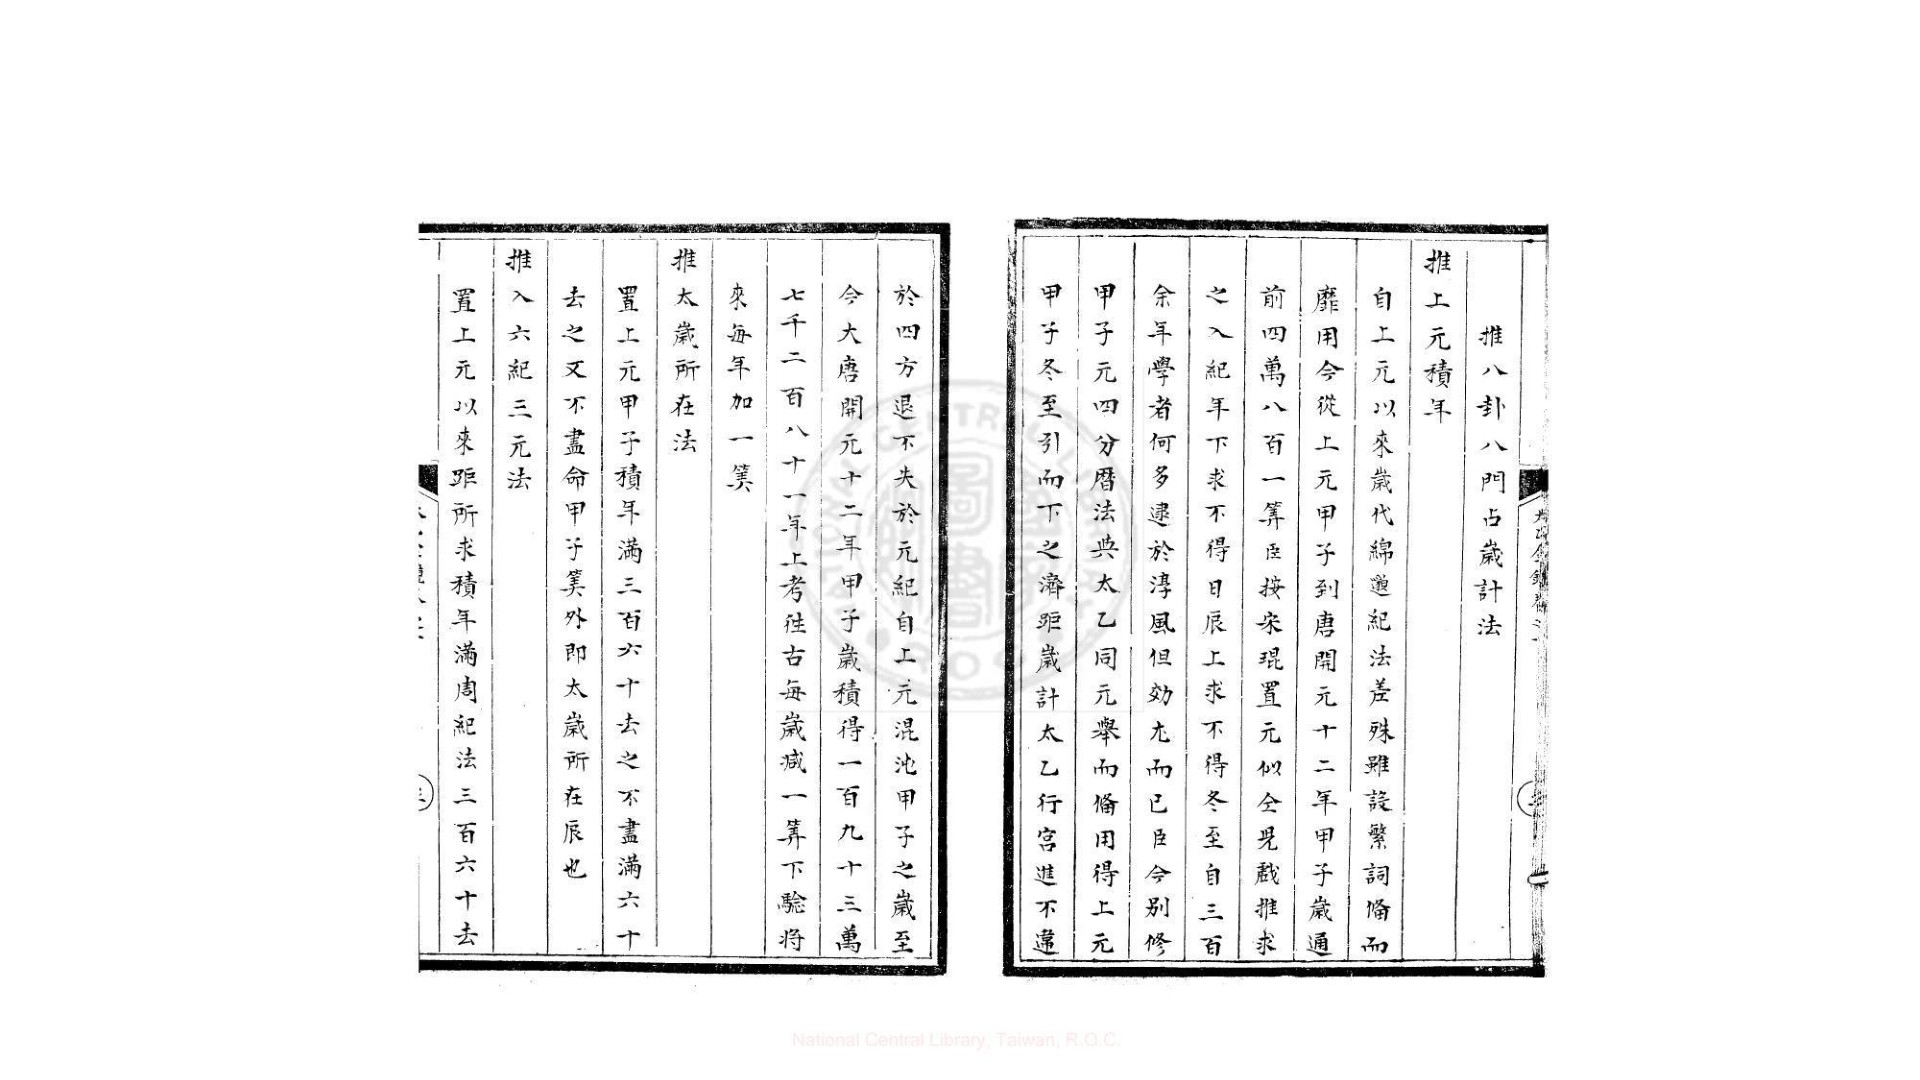 推八卦八門占歲計法
推上元積年
自上元以來歲代綿邈紀法差殊雖設繁詞俻而
靡用今從上元甲子到唐開元十二年甲子歲通
前四萬八百一筭臣按宋琨置元似仝兒戲推求
之入紀年下求不得日辰上求不得冬至自三百
余年學者何多逮於淳風但効尤而已臣今别修
甲子元四分曆法典太乙同元舉而俻用得上元
甲子冬至引而下之濟距歲計太乙行宫進不違
於四方退不失於元紀自上元混沌甲子之歲至
今大唐開元十二年甲子歲積得一百九十三萬
七千二百八十一年上考徃古每歲减一筭下驗将
來每年加一筭
推太歲所在法
置上元甲子積年滿三百六十去之不盡滿六十
去之又不盡命甲子筭外即太歲所在辰也
推入六紀三元法
置上元以來距所求積年滿周紀法三百六十去
National Central Library, Taiwan, R.O.C.